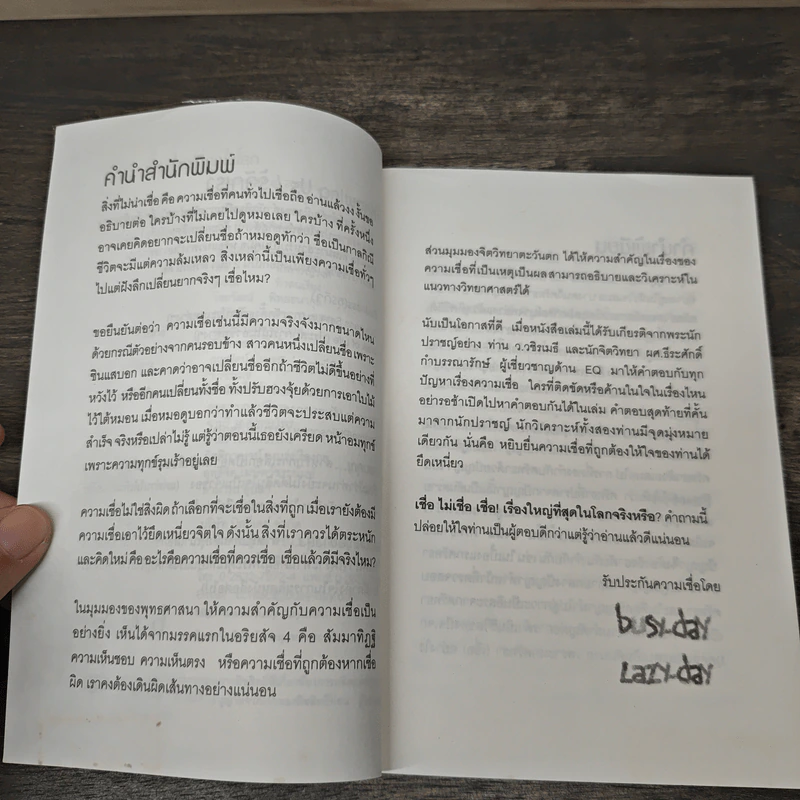 คำนำสำนักพิมพ์
สิ่งที่ไม่น่าเชื่อ คือ ความเชื่อที่คนทั่วไปเชื่อถือ อ่านแล้วงง งั้นขอ
อธิบายต่อ ใครบ้างที่ไม่เคยไปดูหมอเลย ใครบ้าง ที่ครั้งหนึ่ง
อาจเคยคิดอยากจะเปลี่ยนชื่อถ้าหมอดูทักว่า ชื่อเป็นกาลกิณี
ชีวิตจะมีแต่ความล้มเหลว สิ่งเหล่านี้เป็นเพียงความเชื่อทั่วๆ
ไปแต่ฝังลึกเปลี่ยนยากจริงๆ เชื่อไหม?
ขอยืนยันต่อว่า ความเชื่อเช่นนี้มีความจริงจังมากขนาดไหน
ด้วยกรณีตัวอย่างจากคนรอบข้าง สาวคนหนึ่งเปลี่ยนชื่อเพราะ
ซินแสบอก และคาดว่าอาจเปลี่ยนชื่ออีกถ้าชีวิตไม่ดีขึ้นอย่างที่
หวังไว้ หรืออีกคนเปลี่ยนทั้งชื่อ ทั้งปรับฮวงจุ้ยด้วยการเอาใบไม้
ไว้ใต้หมอน เมื่อหมอดูบอกว่าทำแล้วชีวิตจะประสบแต่ความ
สำเร็จ จริงหรือเปล่าไม่รู้ แต่รู้ว่าตอนนี้เธอยังเครียด หน้าอมทุกข์
เพราะความทุกข์รุมเร้าอยู่เลย
ความเชื่อไม่ใช่สิ่งผิด ถ้าเลือกที่จะเชื่อในสิ่งที่ถูก เมื่อเรายังต้องมี
ความเชื่อเอาไว้ยึดเหนี่ยวจิตใจ ดังนั้น สิ่งที่เราควรได้ตระหนัก
และคิดใหม่ คือ อะไรคือความเชื่อที่ควรเชื่อ เชื่อแล้วดีมีจริงไหม?
ในมุมมองของพุทธศาสนา ให้ความสำคัญกับความเชื่อเป็น
อย่างยิ่ง เห็นได้จากมรรคแรกในอริยสัจ 4 คือ สัมมาทิฏฐิ
ความเห็นชอบ ความเห็นตรง หรือความเชื่อที่ถูกต้องหากเชื่อ
ผิด เราคงต้องเดินผิดเส้นทางอย่างแน่นอน
ส่วนมุมมองจิตวิทยาตะวันตก ได้ให้ความสำคัญในเรื่องของ
ความเชื่อที่เป็นเหตุเป็นผลสามารถอธิบายและวิเคราะห์ใน
แนวทางวิทยาศาสตร์ได้
นับเป็นโอกาสที่ดี เมื่อหนังสือเล่มนี้ได้รับเกียรติจากพระนัก
ปราชญ์อย่าง ท่าน ว.วชิรเมธี และนักจิตวิทยา ผศ.ธีระศักดิ์
กำบรรณารักษ์ ผู้เชี่ยวชาญด้าน EQ มาให้คำตอบกับทุก
ปัญหาเรื่องความเชื่อ ใครที่ติดขัดหรือค้านในใจในเรื่องไหน
อย่ารอช้าเปิดไปหาคำตอบกันได้ในเล่ม คำตอบสุดท้ายที่คั้น
มาจากนักปราชญ์ นักวิเคราะห์ทั้งสองท่านมีจุดมุ่งหมาย
เดียวกัน นั่นคือ หยิบยื่นความเชื่อที่ถูกต้องให้ใจของท่านได้
ยึดเหนี่ยว
เชื่อ ไม่เชื่อ เชื่อ! เรื่องใหญ่ที่สุดในโลกจริงหรือ? คำถามนี้
ปล่อยให้ใจท่านเป็นผู้ตอบดีกว่าแต่รู้ว่าอ่านแล้วดีแน่นอน
รับประกันความเชื่อโดย
busy-day
Lazy-day